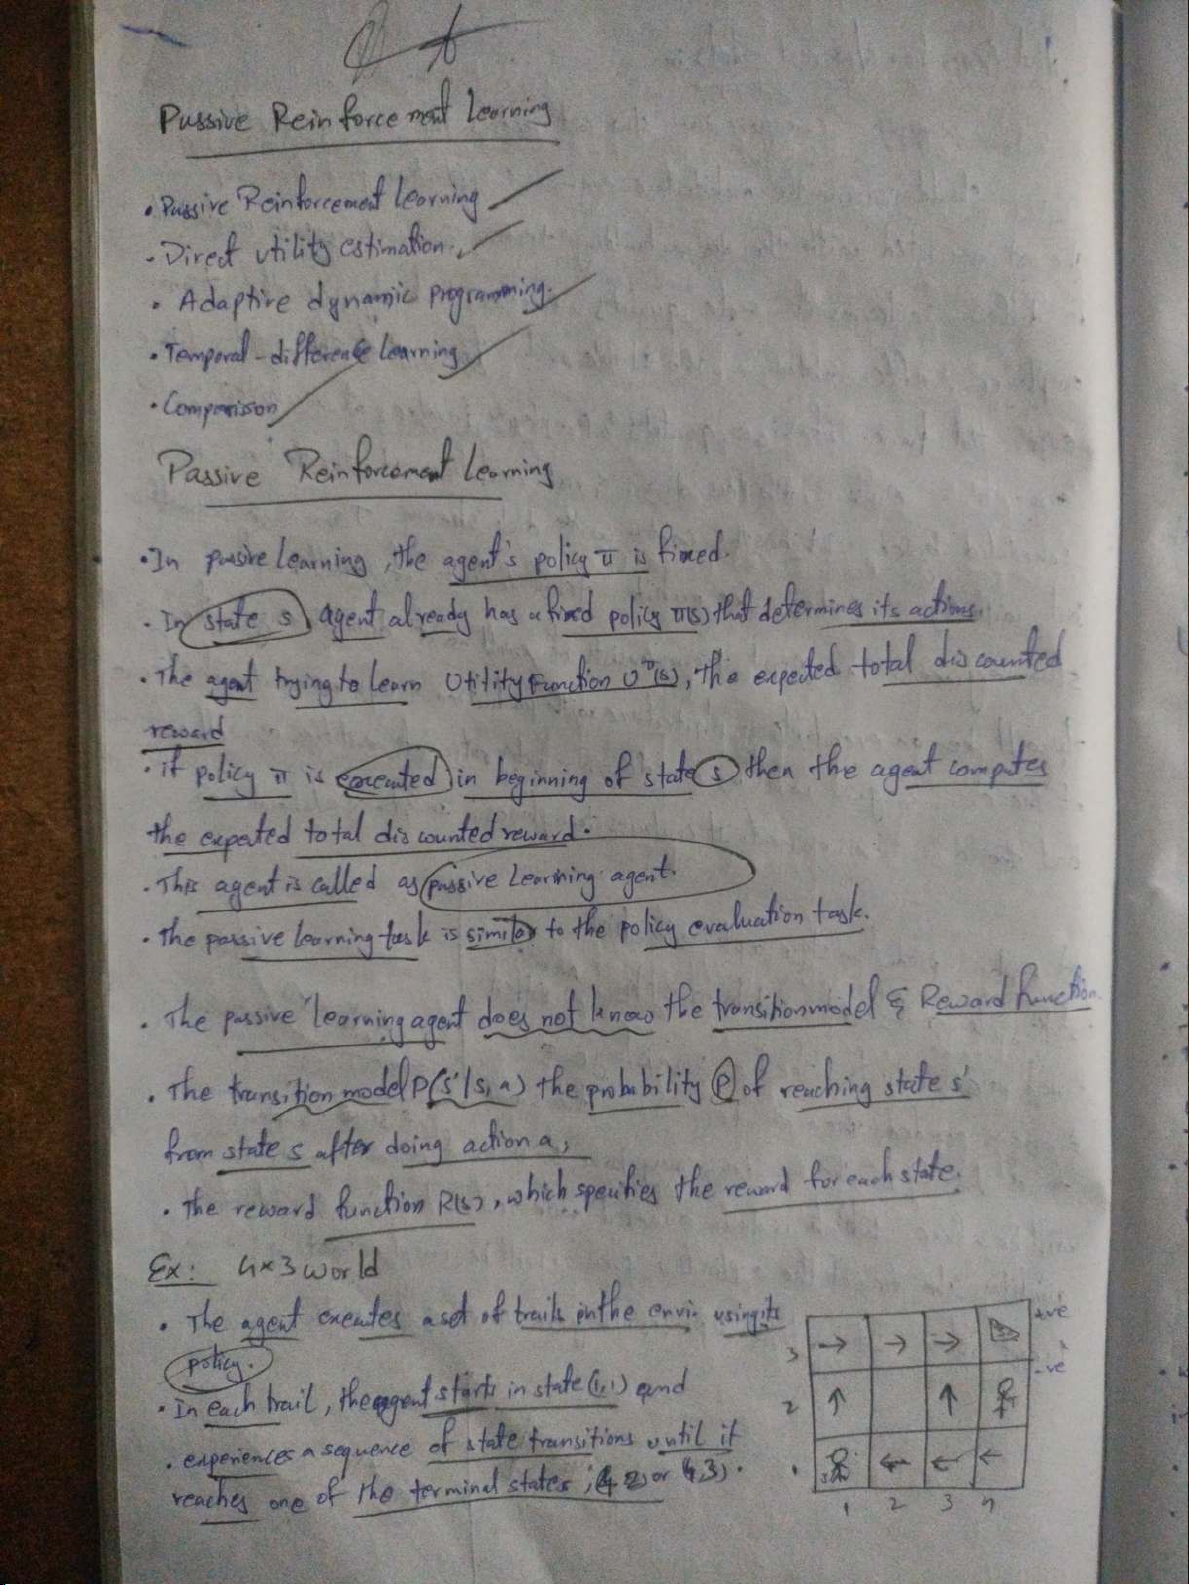 Passive Reinforcement Learning
• Passive Reinforcement Learning
• Direct utility estimation.
• Adaptive dynamic programming.
• Temporal-difference Learning
• Comparison
Passive Reinforcement Learning
• In passive learning, the agent's policy π is fixed.
• In state s agent already has a fixed policy π(s) that determines its actions.
• The agent trying to learn Utility Function U^π(s), The expected total discounted
reward
• if policy π is executed in beginning of state s then the agent computes
the expected total discounted reward.
• This agent is called as passive Learning agent.
• The passive learning task is similar to the policy evaluation task.
• The passive learning agent does not know the transition model & Reward function.
• The transition model P(s'|s, a) the probability P of reaching state s'
from state s after doing action a,
• The reward function R(s), which specifies the reward for each state.
Ex: 4×3 world
• The agent executes a set of trails in the envi. using its
policy.
• In each trail, the agent starts in state (1,1) and
• experiences a sequence of state transitions until it
reaches one of the terminal states, (4,2) or (4,3).
+ve
3 → → →
-ve
2 ↑ ↑
1 ← ← ←
1 2 3 4